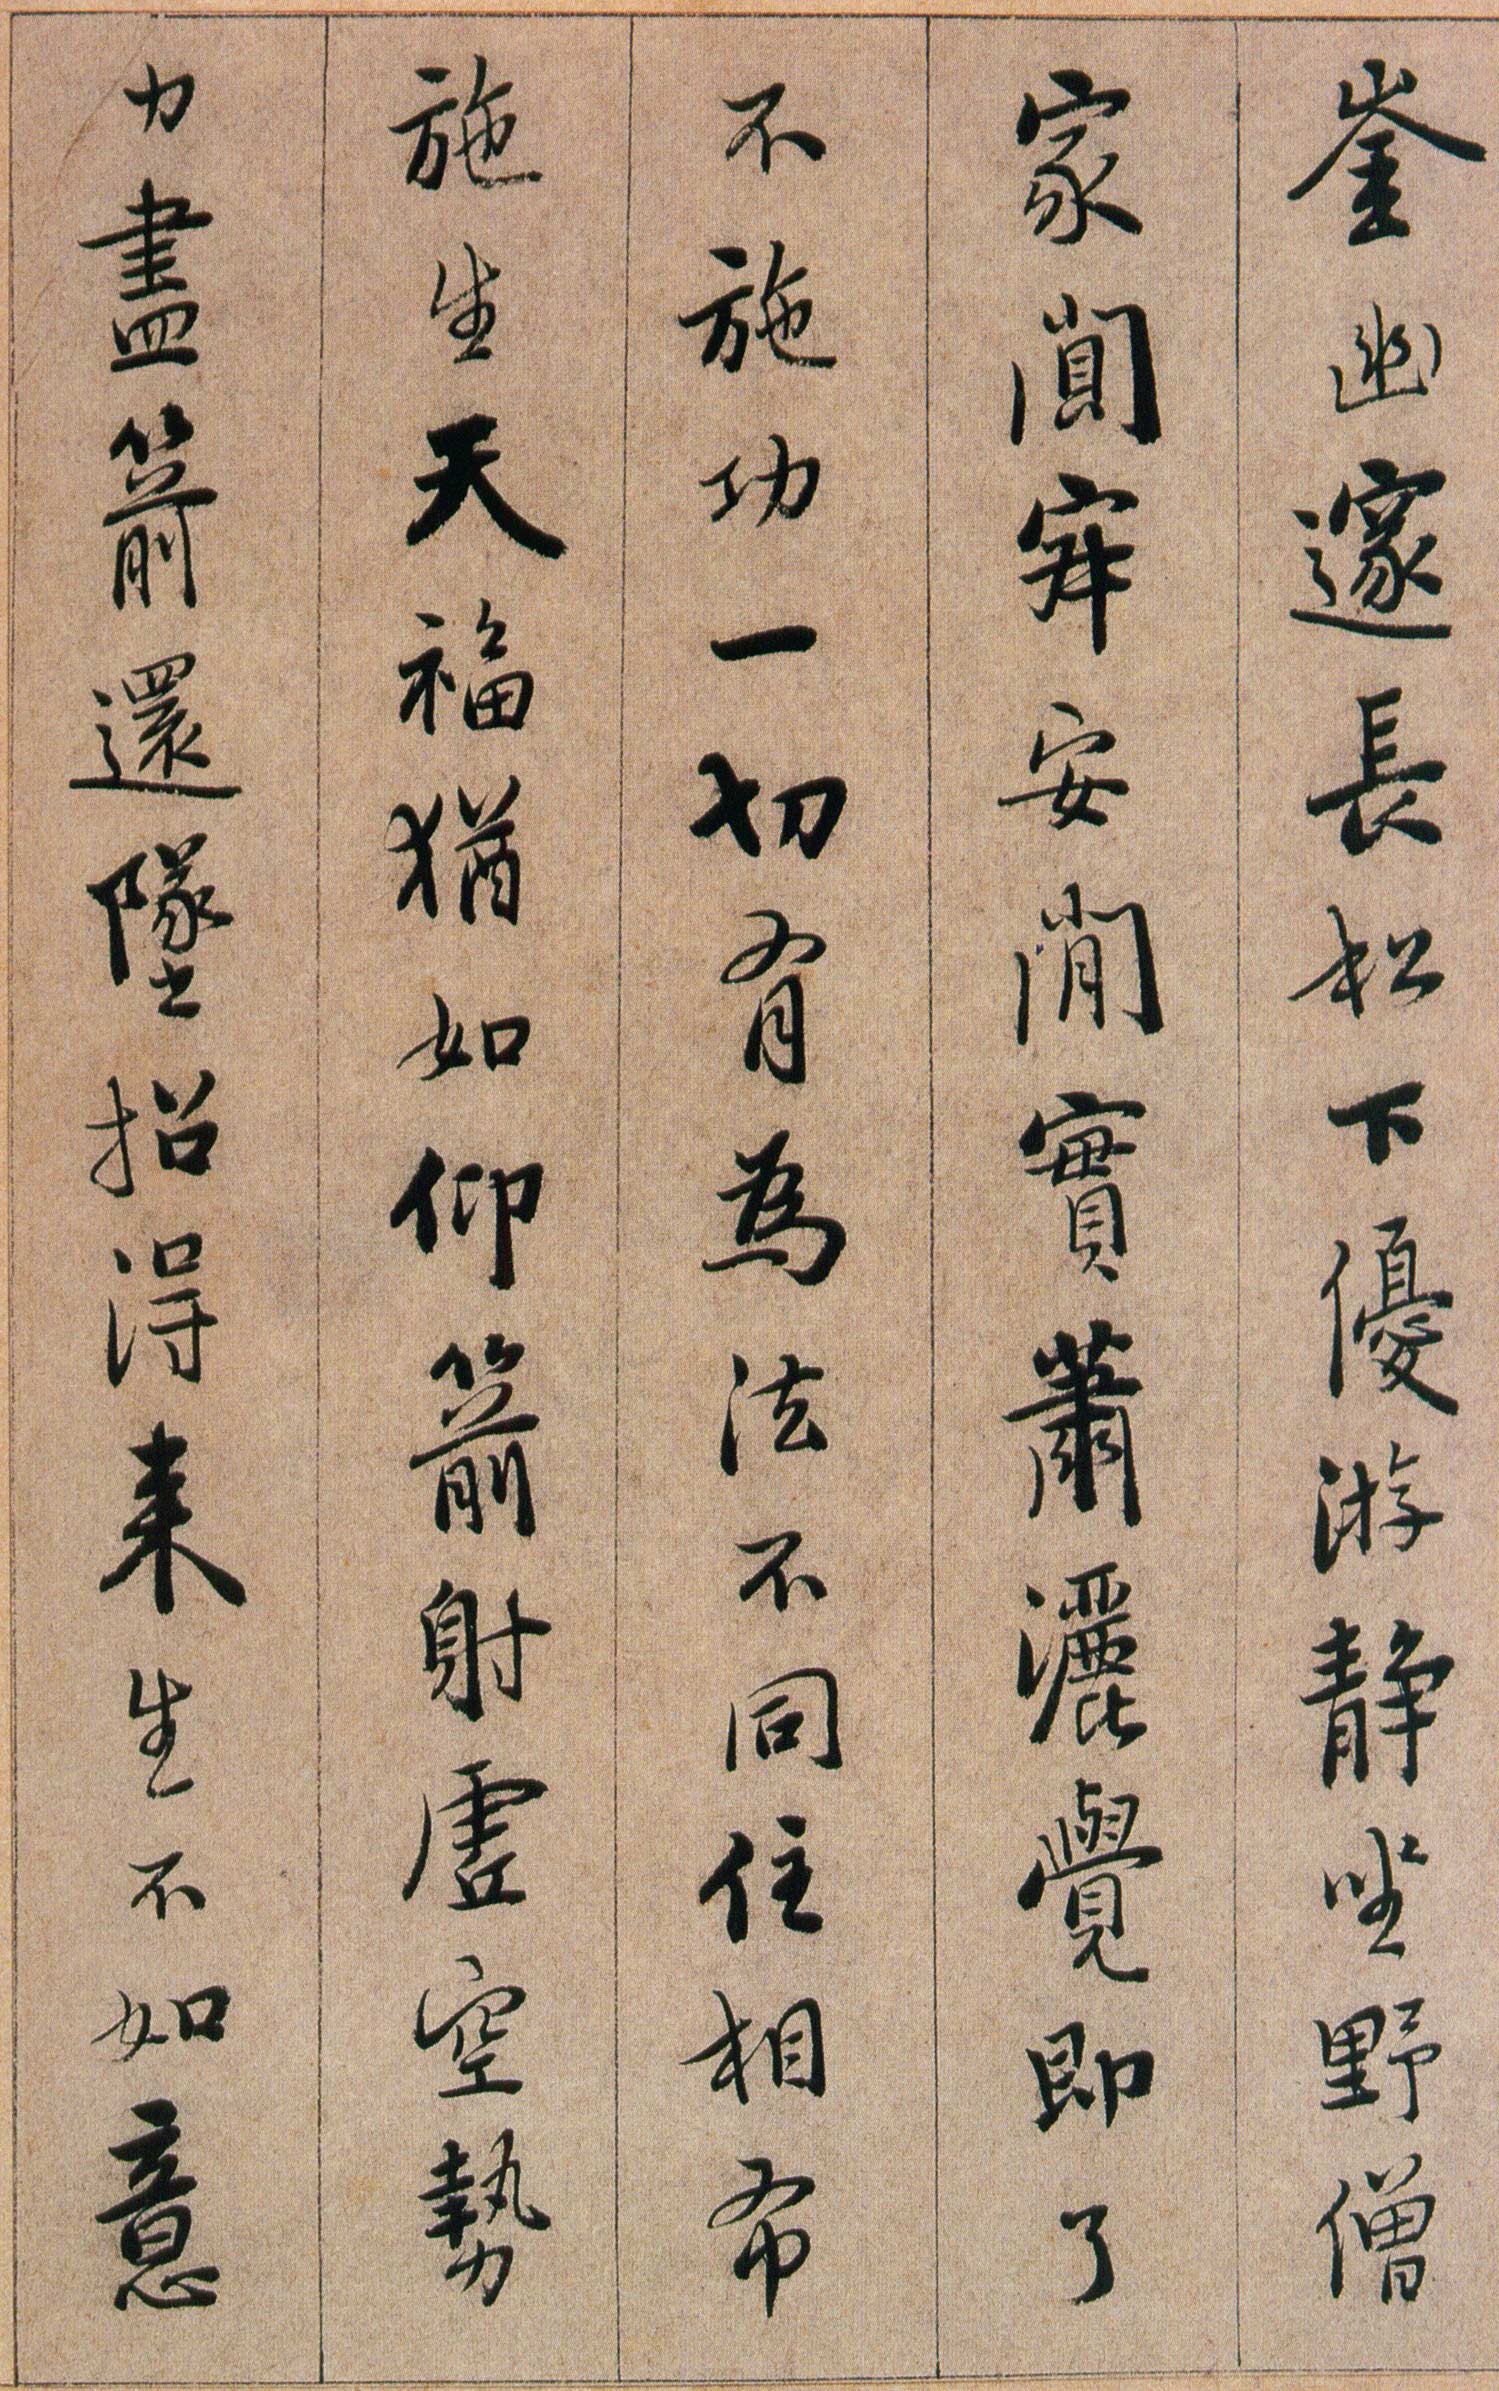 崟幽邃長松下優游靜坐野僧
家闃㝧安閒實蕭灑覺即了
不施功一切有為法不同住相布
施生天福猶如仰箭射虛空勢
力盡箭還墜招得來生不如意